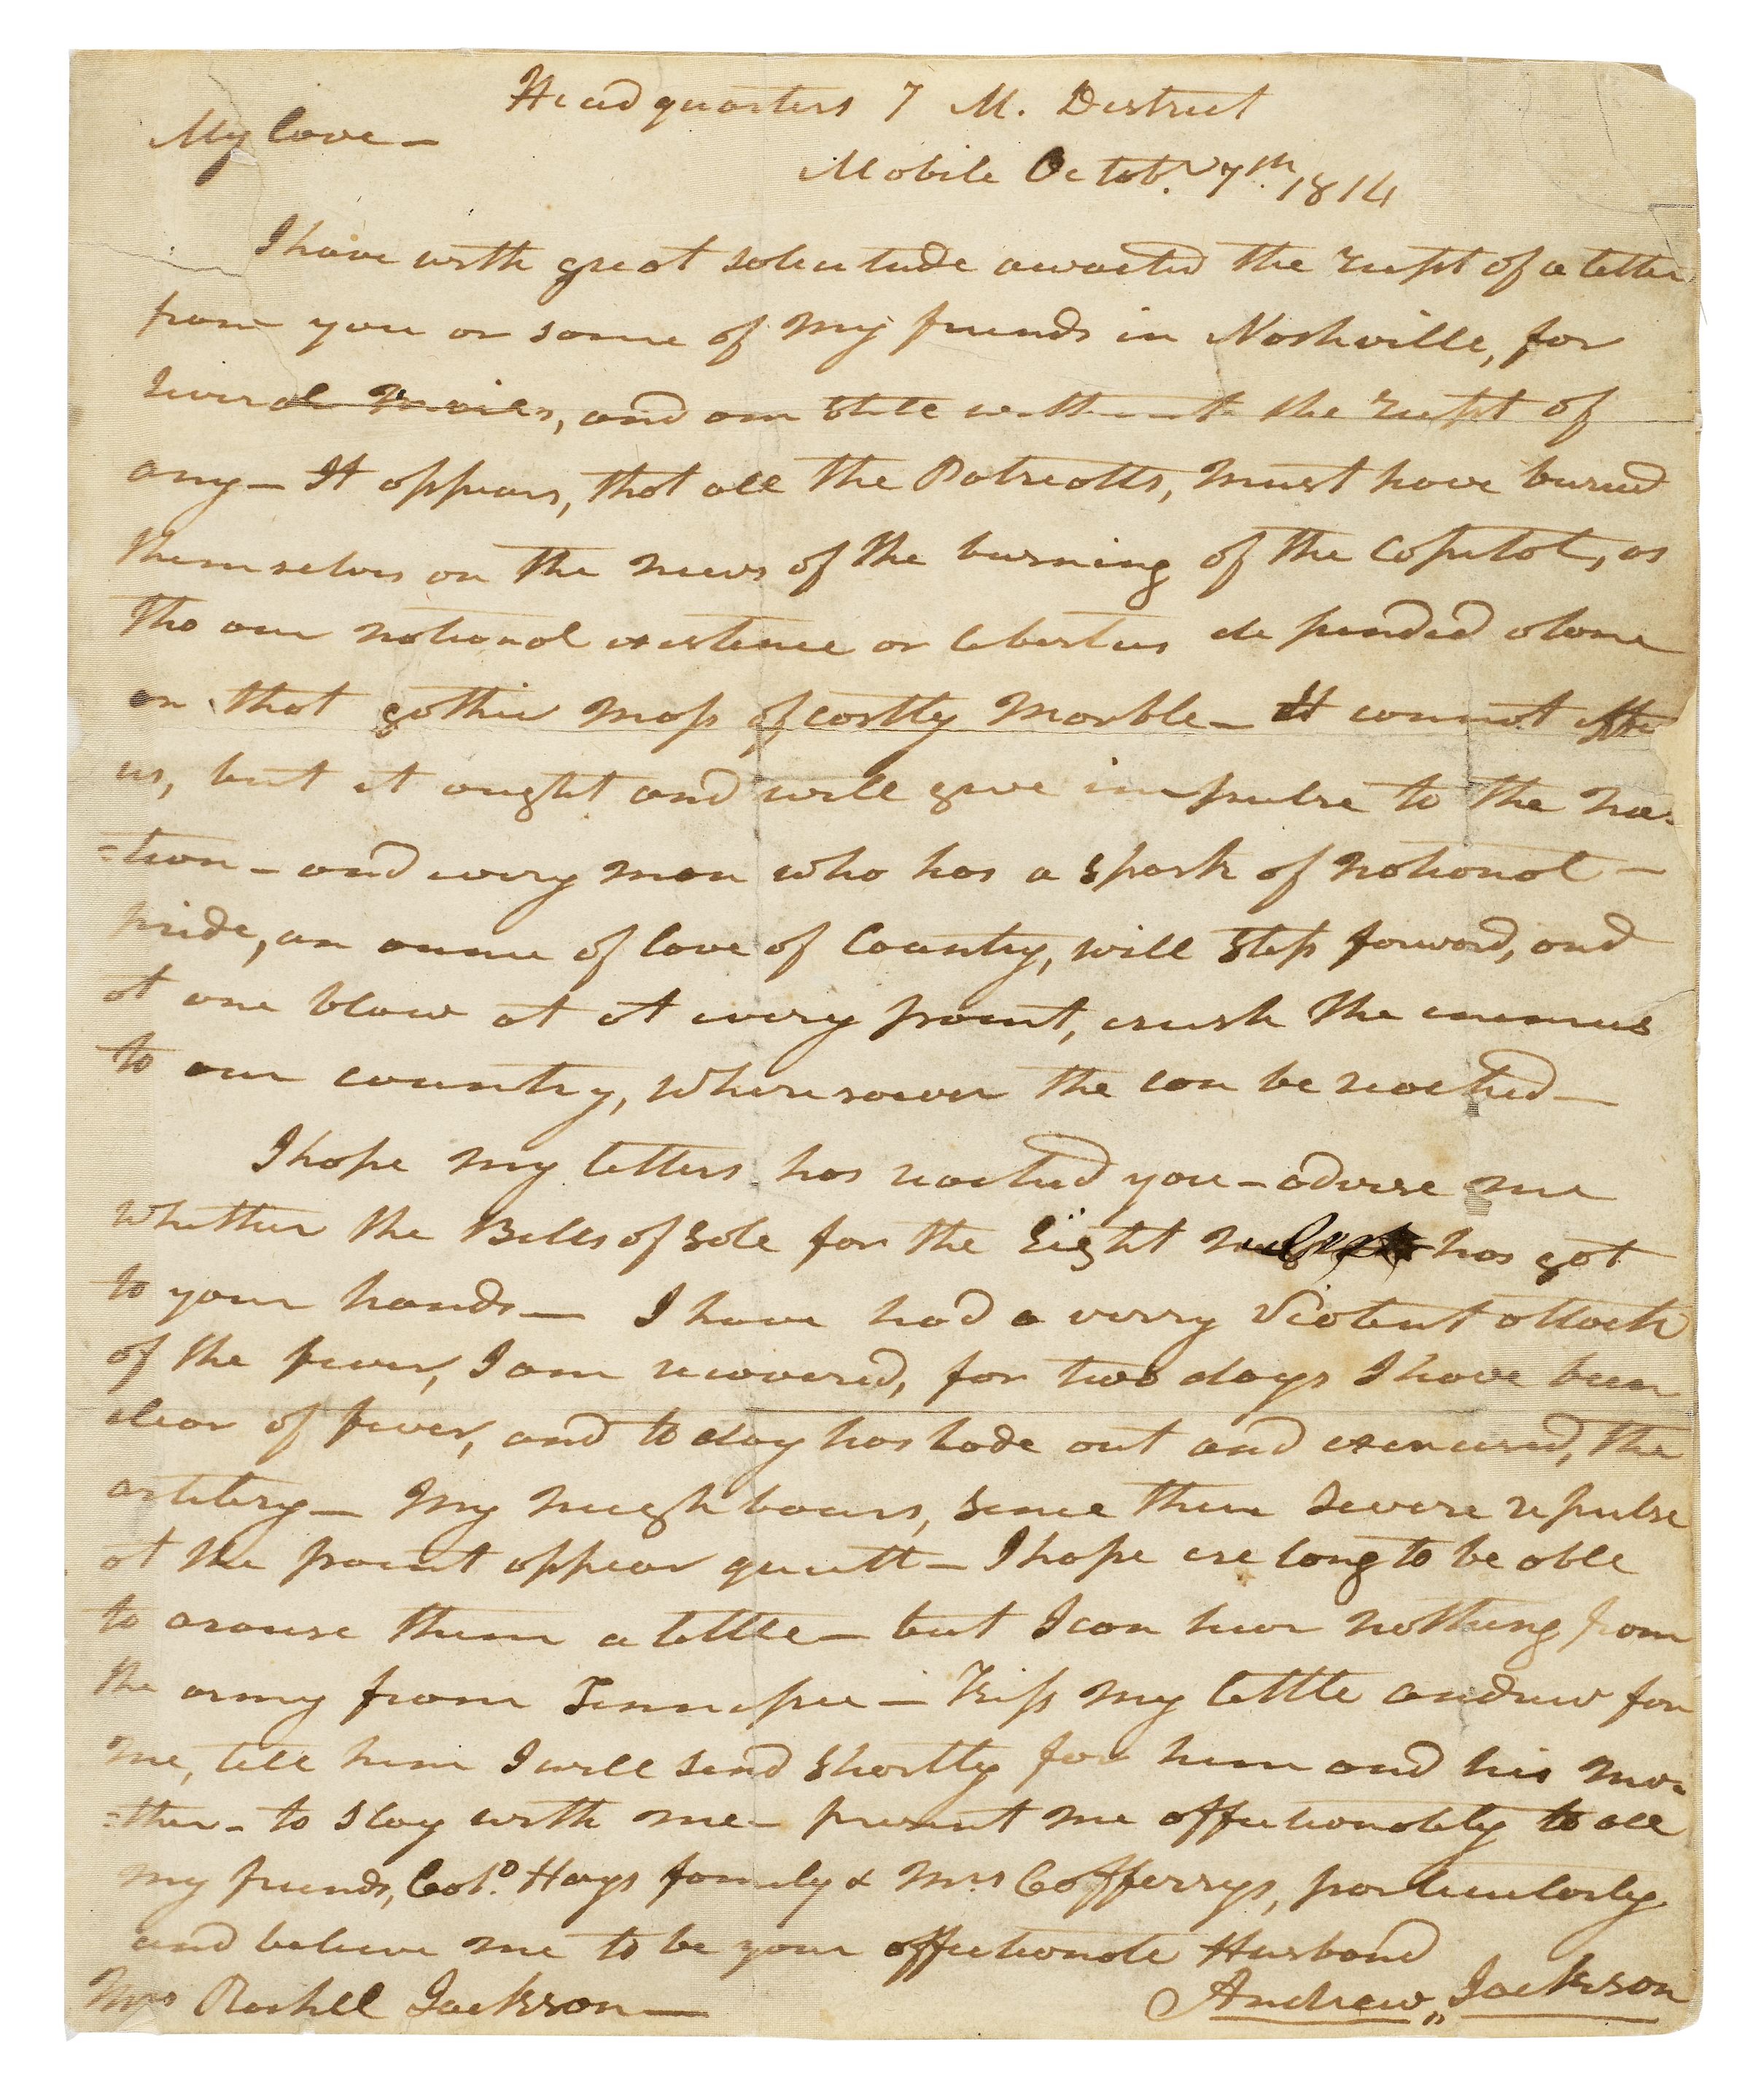 Headquarters 7 M. District
My love—
Mobile Octobr. 7th. 1814
I have with great solicitude awaited the recpt of a letter
from you or some of my friends in Nashville, for
several mails, and am still without the recpt of
any— It appears, that all the Patriotts, must have buried
themselves on the news of the burning of the Capitol, as
tho our national existence or liberties depended alone
on that gothic mass of costly marble— It cannot
us, but it ought and will give impulse to the na-
=tion— and every man who has a spark of national—
pride, or of love of Country, will step forward, and
at one blow at at every point, crush the enemies
to our country, wheresoever the can be reached—
I hope my letters has reached you— advise me
whether the Bills of Sale for the Eight has got
to your hands— I have had a verry violent attack
of the fever, I am recovered, for two days I have been
clear of fever, and to day has rode out and exercised, the
artilery— My neighbours, since their severe repulse
at the point appear quiett— I hope ere long to be able
to arouse them a little— but I can hear nothing from
the army from Tennessee— Kiss my little andrew for
me, tell him I will send shortly for him and his mo-
=ther— to stay with me— present me affectionately to all
my friends, Colo. Hays family & Mrs Cafferrys, particularly
and believe me to be your affectionate Husband
Mrs Rachel Jackson—
Andrew Jackson